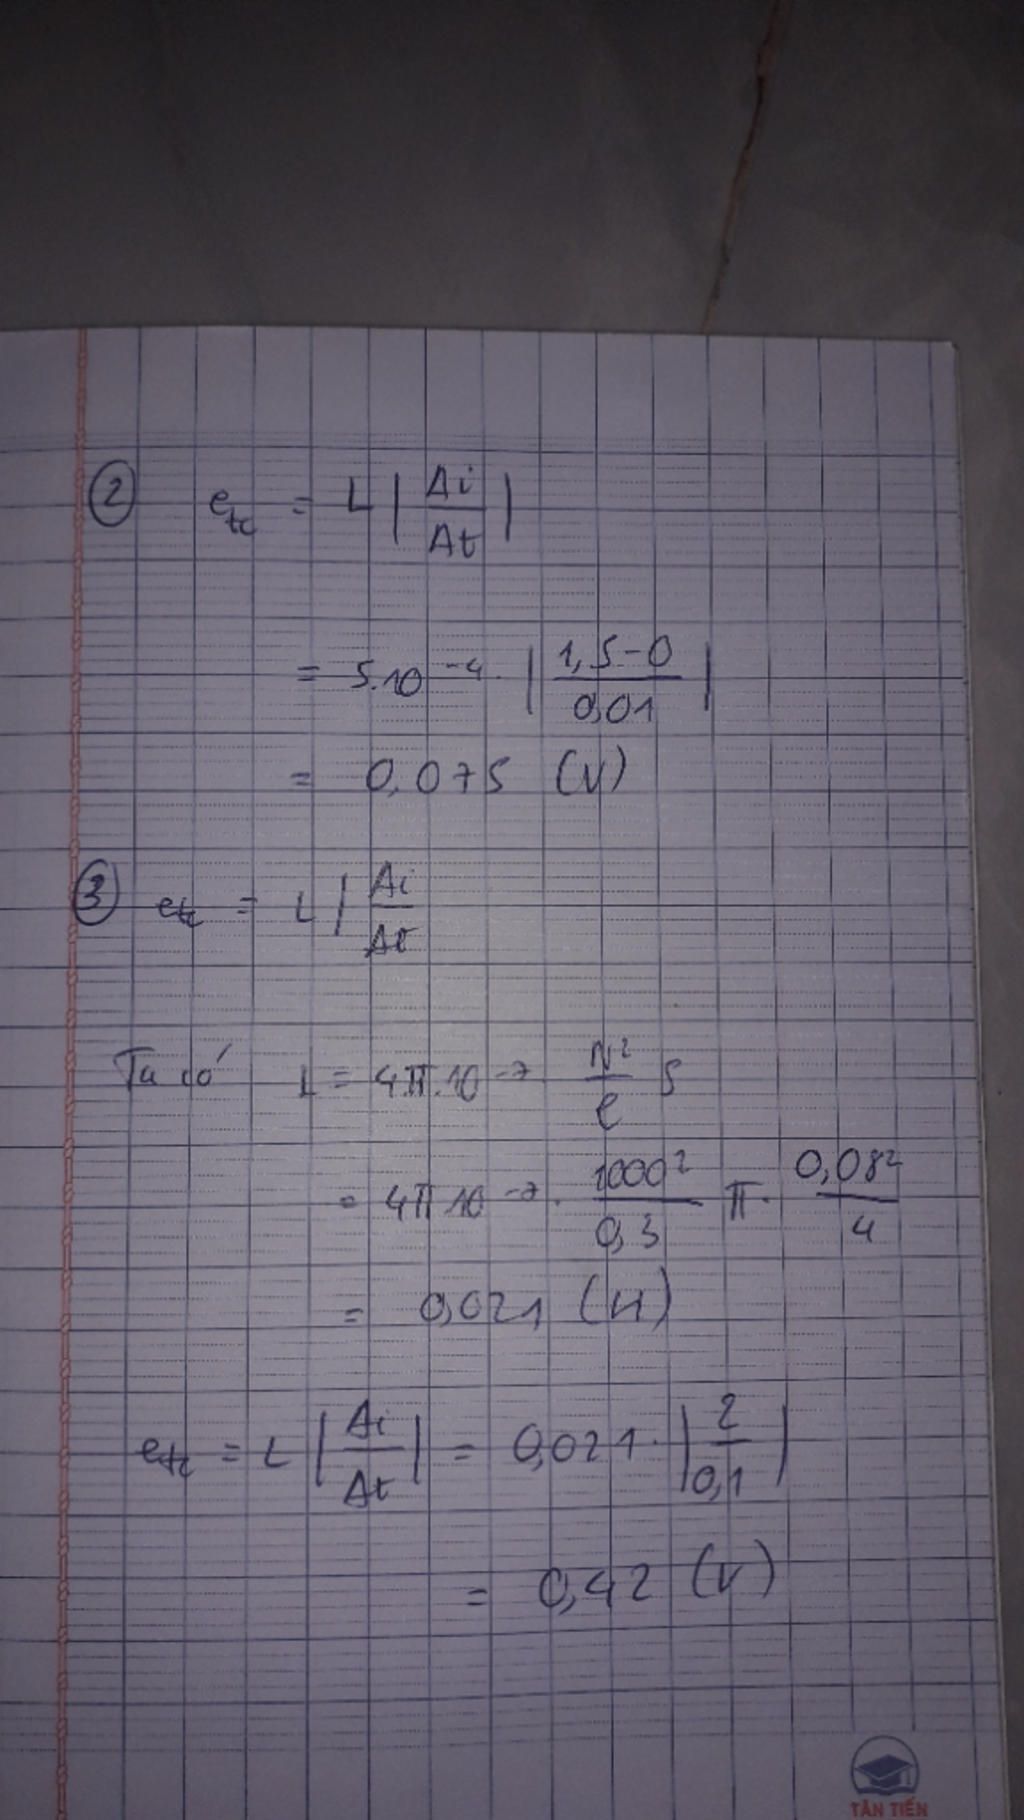 ② e_tc = L | Δi / Δt |
= 5.10^-4 . | 1,5-0 / 0,01 |
= 0,075 (V)
③ e_tc = L | Δi / Δt
Ta có L = 4.π.10^-7 N² / l S
= 4π.10^-7 . 1000² / 0,3 π. 0,08² / 4
= 0,021 (H)
e_tc = L | Δi / Δt | = 0,021 . | 2 / 0,1 |
= 0,42 (V)
TÂN TIẾN